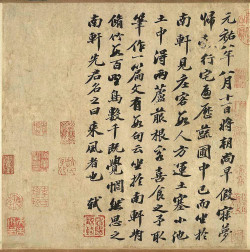 元祐八年八月十一日將朝尚早假寐夢
歸縠行宅遍歷蔬圃中已而坐於
南軒見莊客數人方運土塞小池
土中得兩蘆菔根客喜食之予取
筆作一篇文有數句云坐於南軒對
脩竹數百野鳥數千既覺惘然思之
南軒先君名之曰來風者也 軾